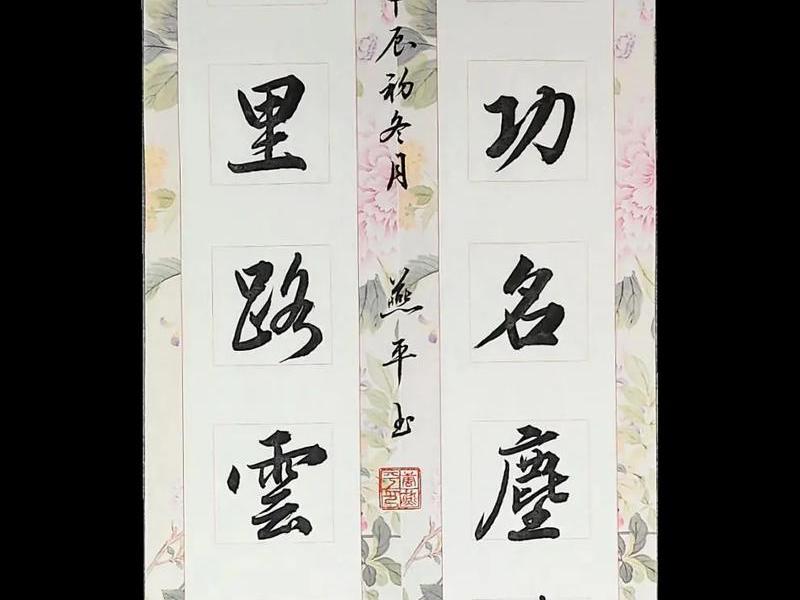 功名塵
辰初冬月 燕平玉
里路雲